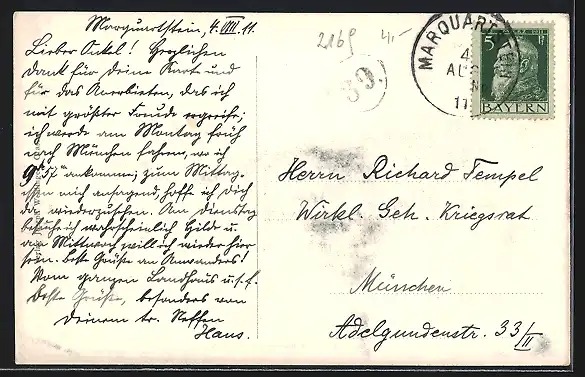 Marquartstein, 4. VIII. 11.
Lieber Onkel! Herzlichen
Dank für Deine Karte und
für das Anerbieten, das ich
mit größter Freude ergreife;
ich werde am Montag früh
nach München fahren, wo ich
9⁵⁷ ankomme; zum Mittag-
essen mich ansagend, hoffe ich Dich
da wiederzusehen. Am Dienstag
besuche ich wahrscheinlich Hilde u.
am Mittwoch will ich wieder hier
sein. Beste Grüße an Anwanders!
Vom ganzen Landhaus u.s.f.
beste Grüße, besonders von
Deinem tr. Neffen
Hans.
2169 4,-
39.
MARQUARTSTEIN
4
AUG
11
5 Pf
BAYERN
Herrn Richard Tempel
Wirkl. Geh. Kriegsrat
München
Adelgundenstr. 33/II